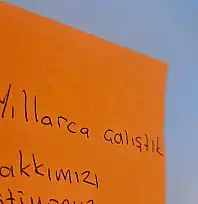 Yıllarca çalıştık
akkımızı